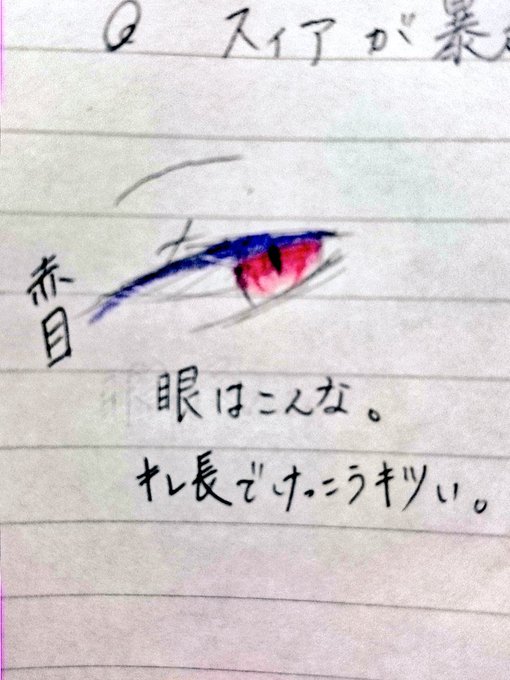 Q スィアが暴
赤目
眼はこんな。
キレ長でけっこうキツい。